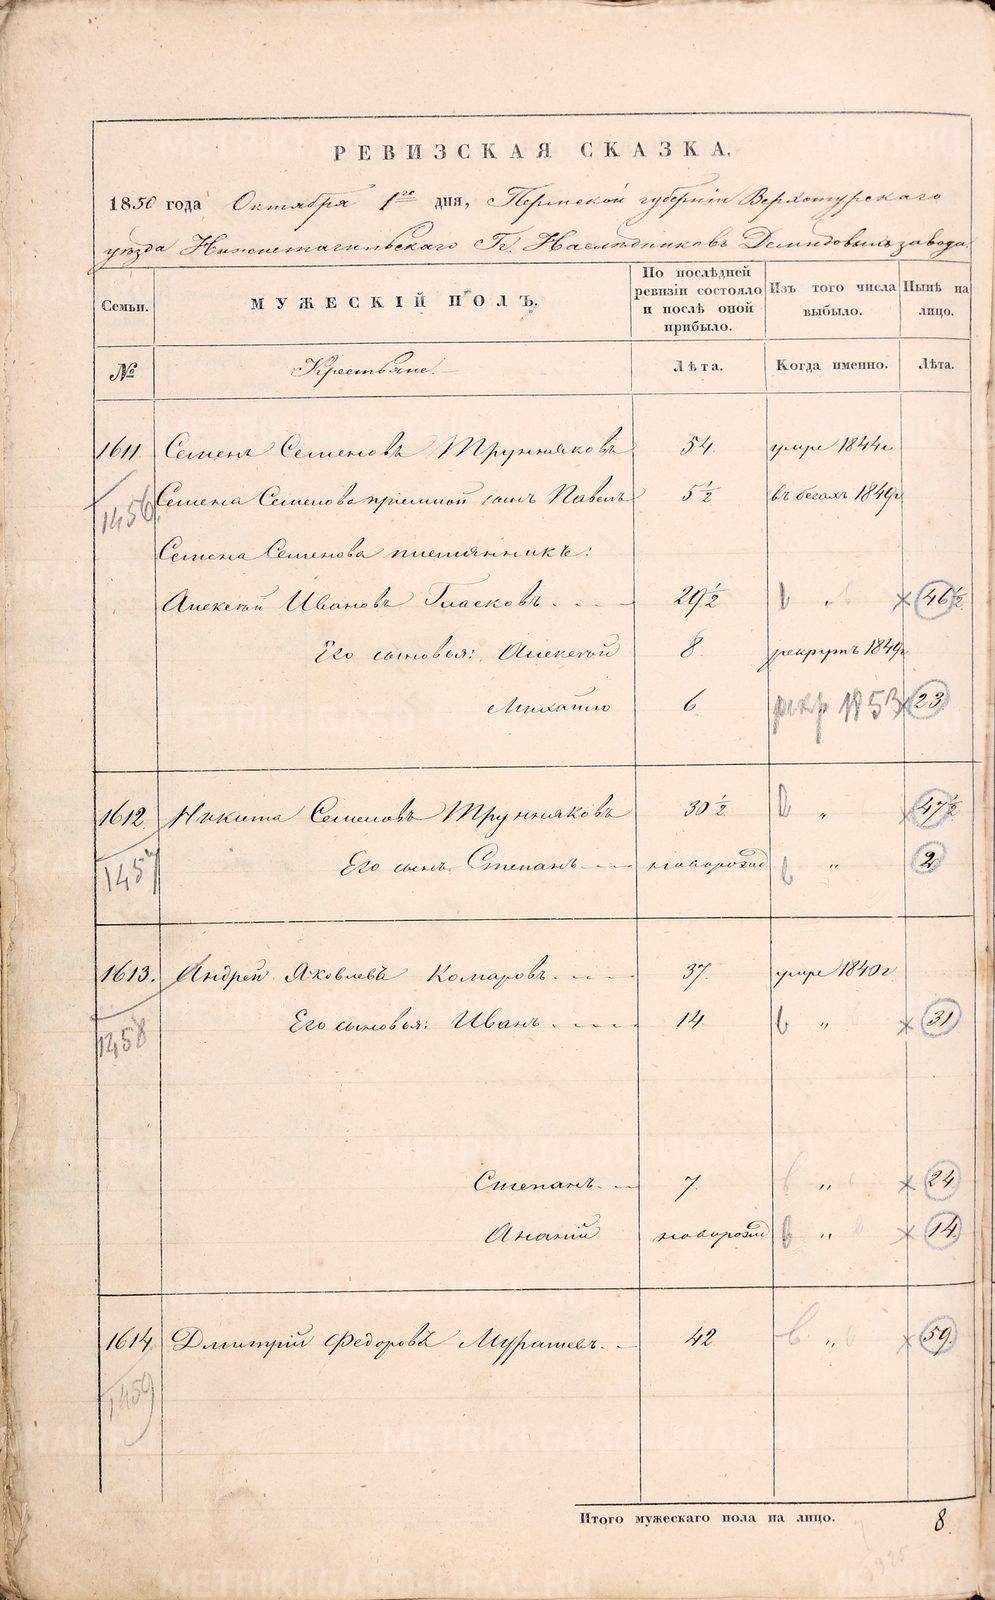 РЕВИЗСКАЯ СКАЗКА.
1850 года Октября 1го дня, Пермской губернiи Верхотурскаго
уѣзда Нижнетагильскаго Гг. Наслѣдниковъ Демидовыхъ завода.
Семьи. МУЖЕСКIЙ ПОЛЪ. По послѣдней ревизiи состояло и послѣ оной прибыло. Изъ того числа выбыло. Нынѣ на лицо.
№ Крестьяне. Лѣта. Когда именно. Лѣта.
1611 Семенъ Семеновъ Трунняковъ 54 умре 1844г
1456 Семена Семенова прiемной сынъ Павелъ 5½ въ бегахъ 1849г
Семена Семенова племянникъ:
Алексѣй Ивановъ Гласковъ 29½ в „ × 46½
Его сыновья: Алексѣй 8 рекрутъ 1849г
Михайло 6 рекр 1853 × 23
1612 Никита Семеновъ Трунняковъ 30½ в „ × 47½
1457 Его сынъ Степанъ новорожд в „ 2
1613. Андрей Яковлевъ Комаровъ 37 умре 1840г
1458 Его сыновья: Иванъ 14 в „ × 31
Степанъ 7 в „ × 24
Ананiй новорожд в „ × 14
1614 Дмитрiй Федоровъ Мурашевъ 42 в „ × 59.
1459
Итого мужескаго пола на лицо. 8
METRIKI.GASO-URAL.RU